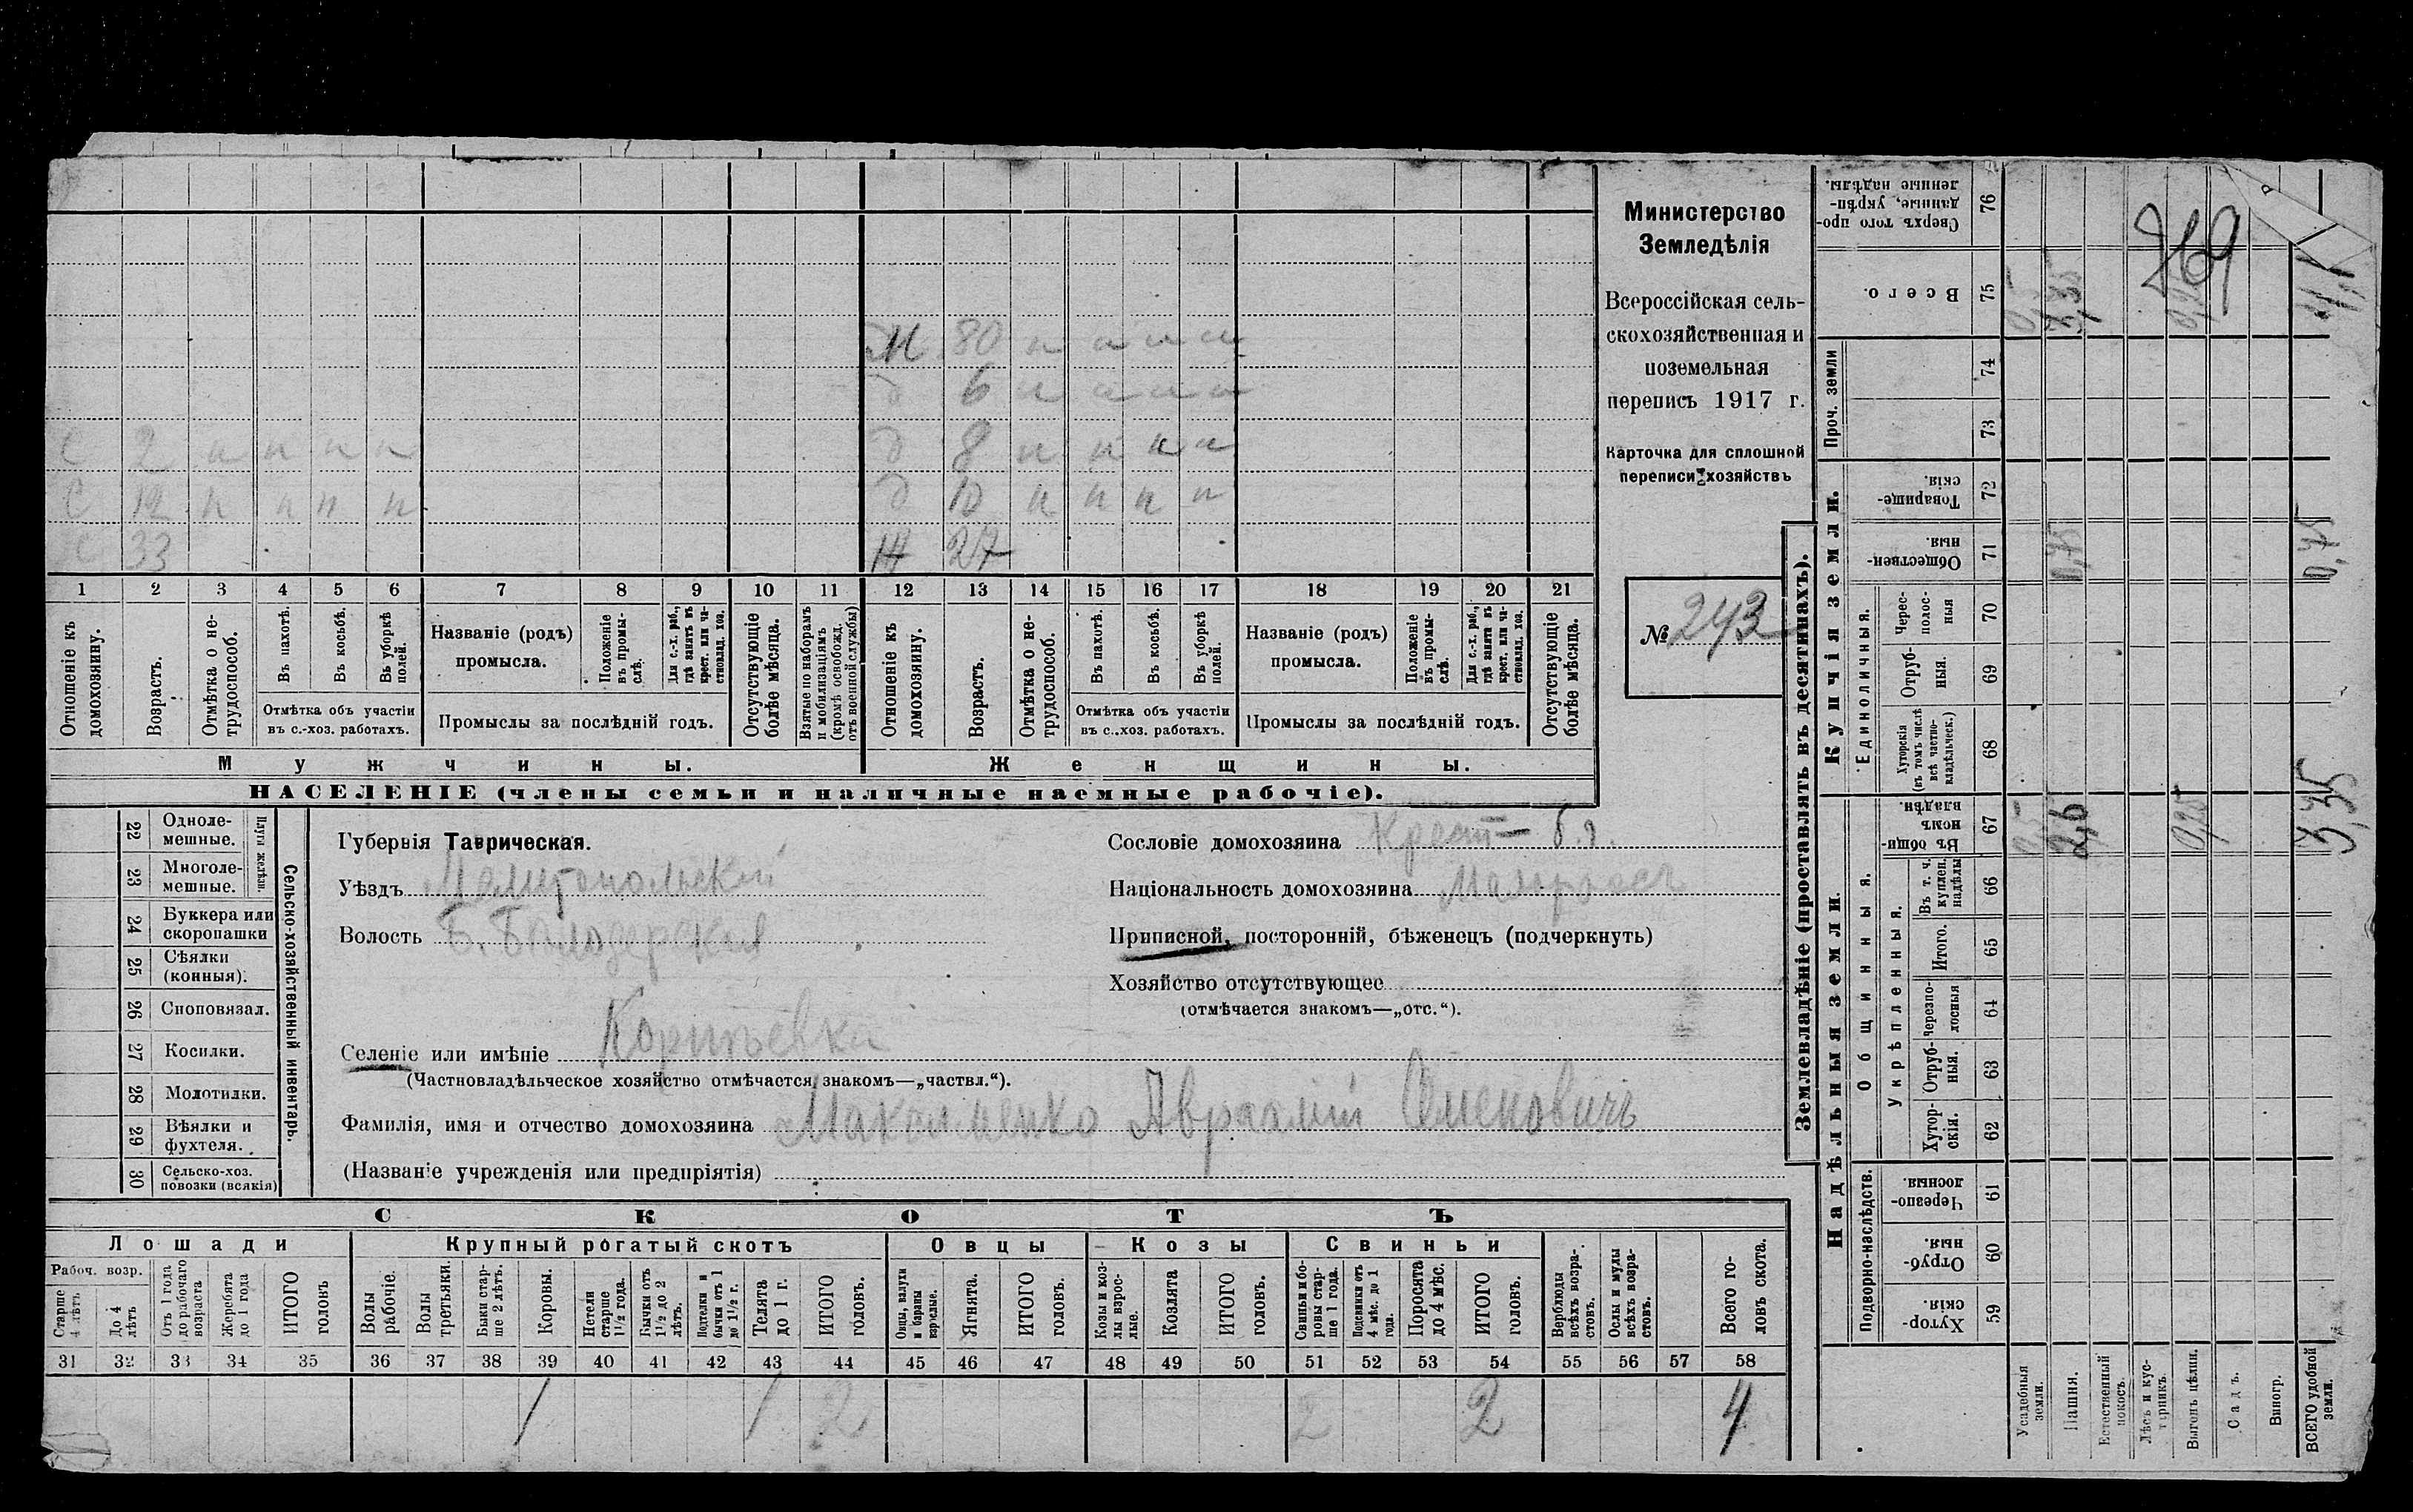 Министерство
Земледѣлія
Всероссійская сель-
скохозяйственная и
поземельная
перепись 1917 г.
Карточка для сплошной
переписи хозяйствъ
№ 243
769
М 80 н н н н
д 6 н н н н
с 2 н н н н
д 8 н н н н
с 12 н н н н
д 10 н н н н
с 33
Ж 27
1 2 3 4 5 6 7 8 9 10 11 12 13 14 15 16 17 18 19 20 21
Отношеніе къ домохозяину.
Возрастъ.
Отмѣтка о не-трудоспособ.
Въ пахотѣ.
Въ косьбѣ.
Въ уборкѣ полей.
Отмѣтка объ участіи
въ с.-хоз. работахъ.
Названіе (родъ)
промысла.
Положеніе въ промы-слѣ.
Для с.-х. раб., гдѣ занятъ въ крест. или ча-стновлад. хоз.
Промыслы за послѣдній годъ.
Отсутствующіе болѣе мѣсяца.
Взятые по наборамъ и мобилизаціямъ (кромѣ освобожд. отъ военной службы)
Отношеніе къ домохозяину.
Возрастъ.
Отмѣтка о не-трудоспособ.
Въ пахотѣ.
Въ косьбѣ.
Въ уборкѣ полей.
Отмѣтка объ участіи
въ с.-хоз. работахъ.
Названіе (родъ)
промысла.
Положеніе въ промы-слѣ.
Для с.-х. раб., гдѣ занята въ крест. или ча-стновлад. хоз.
Промыслы за послѣдній годъ.
Отсутствующіе болѣе мѣсяца.
Мужчины. Женщины.
НАСЕЛЕНІЕ (члены семьи и наличные наемные рабочіе).
22 Одноле-мешные.
23 Многоле-мешные.
Плуги желѣзн.
24 Буккера или скоропашки
25 Сѣялки (конныя).
26 Сноповязал.
27 Косилки.
28 Молотилки.
29 Вѣялки и фухтеля.
30 Сельско-хоз. повозки (всякія)
Сельско-хозяйственный инвентарь.
Губернія Таврическая.
Уѣздъ Мелитопольскій
Волость Б. Бѣлозерская
Селеніе или имѣніе
(Частновладѣльческое хозяйство отмѣчается знакомъ—„частвл.“).
Фамилія, имя и отчество домохозяина Максименко Авраамій
(Названіе учрежденія или предпріятія)
Сословіе домохозяина Крест
Національность домохозяина Малоросъ
Приписной, посторонній, бѣженецъ (подчеркнуть)
Хозяйство отсутствующее
(отмѣчается знакомъ—„отс.“).
СКОТЪ
Лошади Крупный рогатый скотъ Овцы Козы Свиньи
Рабоч. возр.
Старше 4 лѣтъ
До 4 лѣтъ
Отъ 1 года до рабочаго возраста
Жеребята до 1 года
ИТОГО головъ
Волы рабочіе.
Волы третьяки.
Быки стар-ше 2 лѣтъ.
Коровы.
Нетели старше 1½ года.
Бычки отъ 1½ до 2 лѣтъ.
Подтелки и бычки отъ 1 до 1½ г.
Телята до 1 г.
ИТОГО головъ.
Овцы, валухи и бараны взрослые.
Ягнята.
ИТОГО головъ.
Козы и коз-лы взрос-лые.
Козлята
ИТОГО головъ.
Свиньи и бо-ровы стар-ше 1 года.
Подсвинки отъ 4 мѣс. до 1 года.
Поросята до 4 мѣс.
ИТОГО головъ.
Верблюды всѣхъ возра-стовъ.
Ослы и мулы всѣхъ возра-стовъ.
Всего го-ловъ скота.
31 32 33 34 35 36 37 38 39 40 41 42 43 44 45 46 47 48 49 50 51 52 53 54 55 56 57 58
1 1 2 2 2 4
Землевладѣніе (проставлять въ десятинахъ).
Надѣльныя земли. Купчія земли. Проч. земли
Подворно-наслѣдств.
Общинныя.
Укрѣпленныя.
Единоличныя.
Хутор-скія. 59
Отруб-ныя. 60
Черезпо-лосныя. 61
Хутор-скія. 62
Отруб-ныя. 63
Черезпо-лосныя 64
Итого. 65
Въ т. ч. куплен. надѣлы 66
Въ общин-номъ владѣн. 67
Хуторскія (въ томъ числѣ всѣ частно-владѣльческ.) 68
Отруб-ныя. 69
Черес-полос-ныя 70
Обществен-ныя. 71
Товарище-скія. 72
73
74
Всего. 75
Сверхъ того про-данные, укрѣп-ленные надѣлы. 76
Усадебныя земли. 0,5 0,5
Пашня. 2,6 0,75 3,35
Естественный покосъ.
Лѣсъ и кус-тарникъ.
Выгонъ цѣлин. 0,25 0,25
Садъ.
Виногр.
ВСЕГО удобной земли. 3,35 0,75 4,1